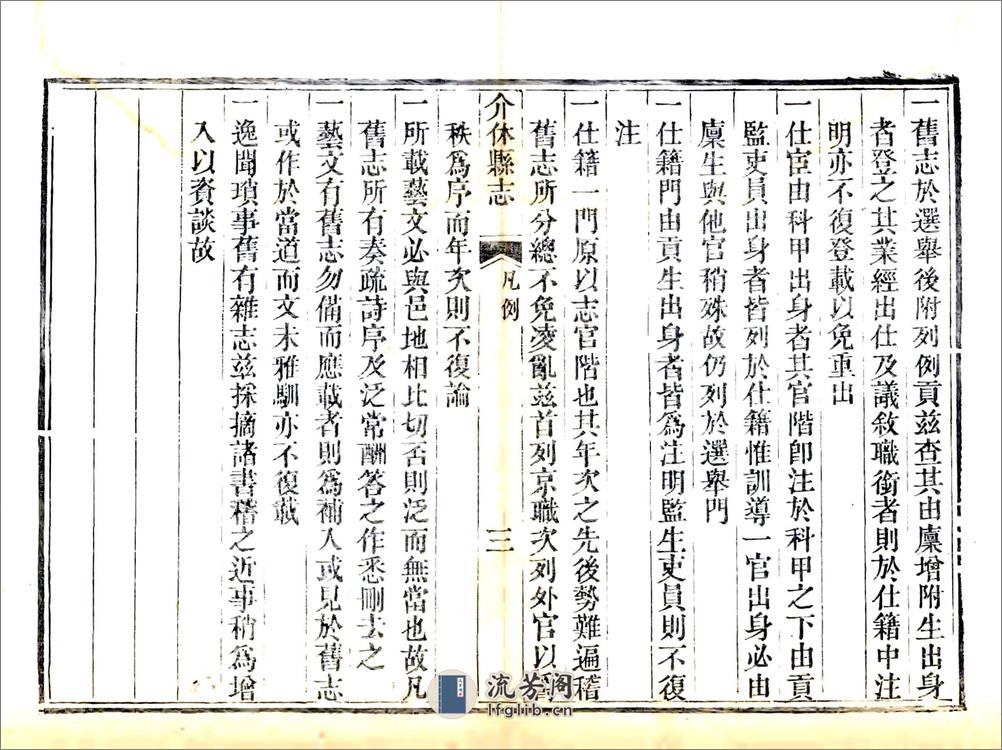 一舊志於選舉後附列例貢茲查其由廩增附生出身
者登之其業經出仕及議敘職銜者則於仕籍中注
明亦不復登載以免重出
一仕宦由科甲出身者其官階卽注於科甲之下由貢
監吏員出身者皆列於仕籍惟訓導一官出身必由
廩生與他官稍殊故仍列於選舉門
一仕籍門由貢生出身者皆爲注明監生吏員則不復
注
一仕籍一門原以志官階也其年次之先後勢難遍稽
舊志所分總不免凌亂茲首列京職次列外官以
秩爲序而年次則不復論
介休縣志
凡例
三
一所載藝文必與邑地相比切否則泛而無當也故凡
舊志所有奏疏詩序及泛常酬答之作悉刪去之
一藝文有舊志勿備而應載者則爲補入或見於舊志
或作於當道而文未雅馴亦不復載
一逸聞瑣事舊有雜志茲採摘諸書稽之近事稍爲增
入以資談故
流芳閣
lfglib.cn